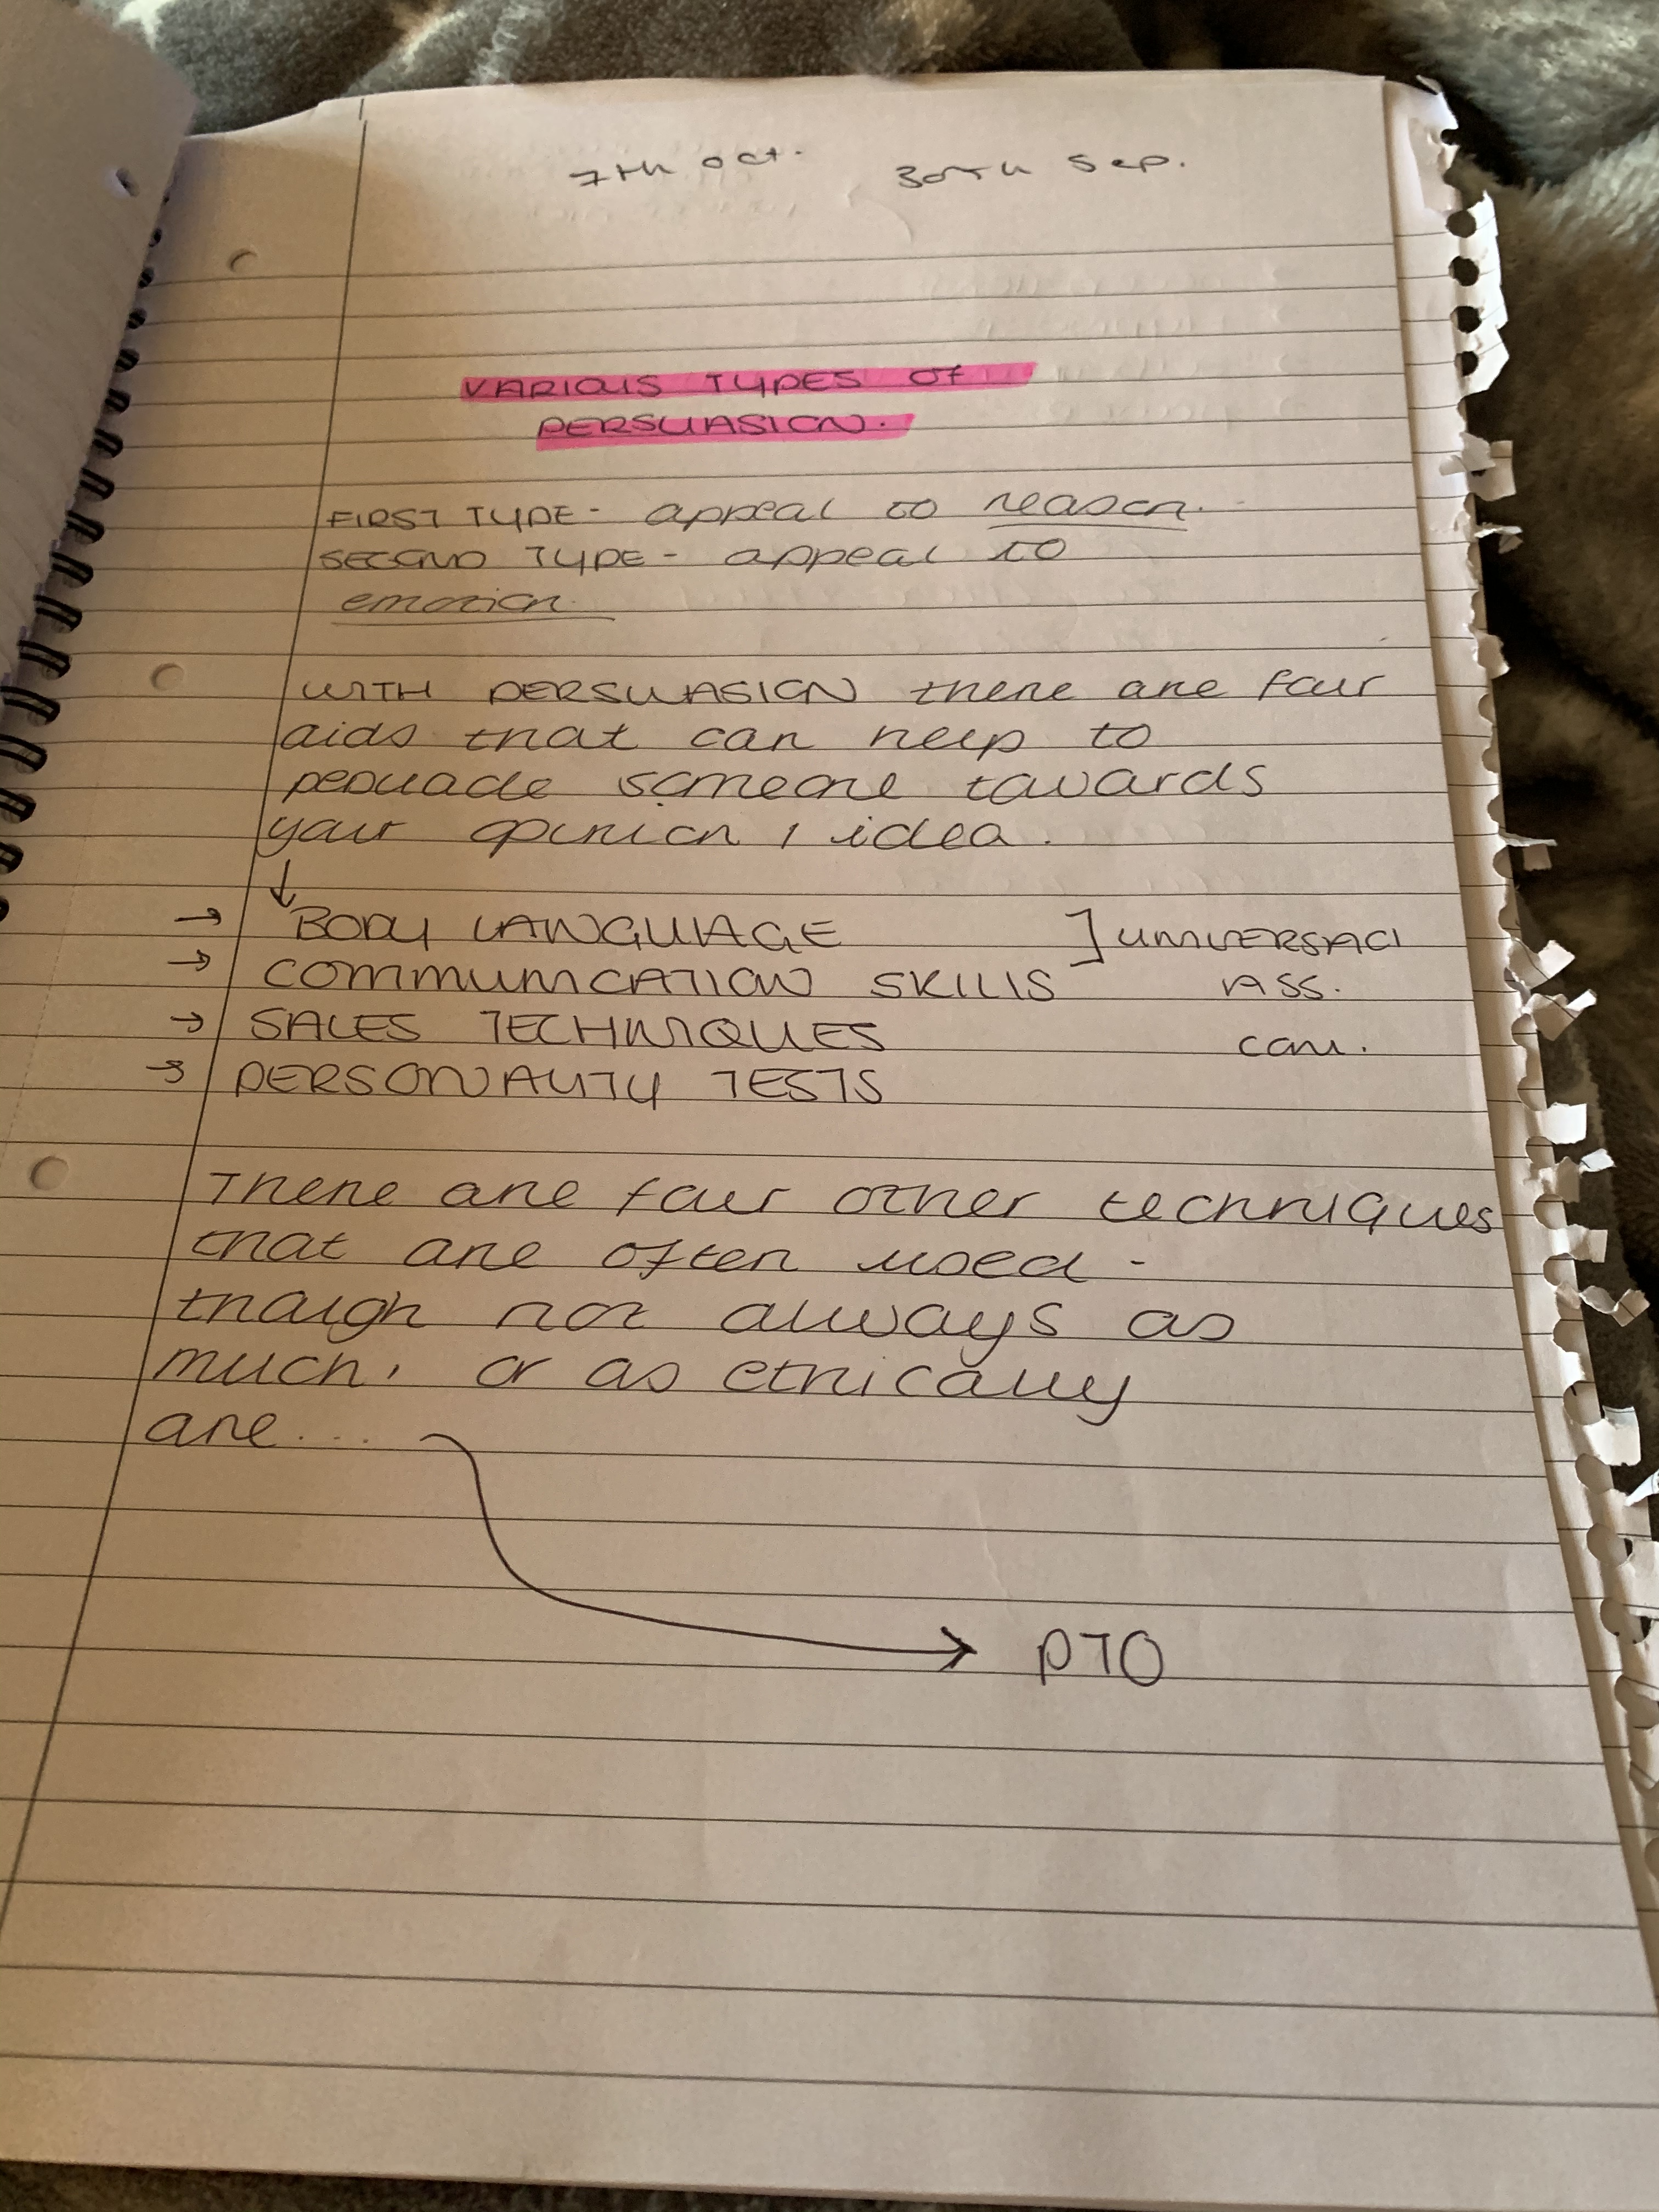 7th Oct. 30th Sep.
VARIOUS TYPES OF
PERSUASION.
FIRST TYPE - appeal to reason.
SECOND TYPE - appeal to
emotion.
WITH PERSUASION there are four
aids that can help to
persuade someone towards
your opinion / idea.
→ BODY LANGUAGE ] UNIVERSAL
→ COMMUNICATION SKILLS ASS.
→ SALES TECHNIQUES
→ PERSONALITY TESTS
There are four other techniques
that are often used -
though not always as
much, or as ethically
are...
→ PTO